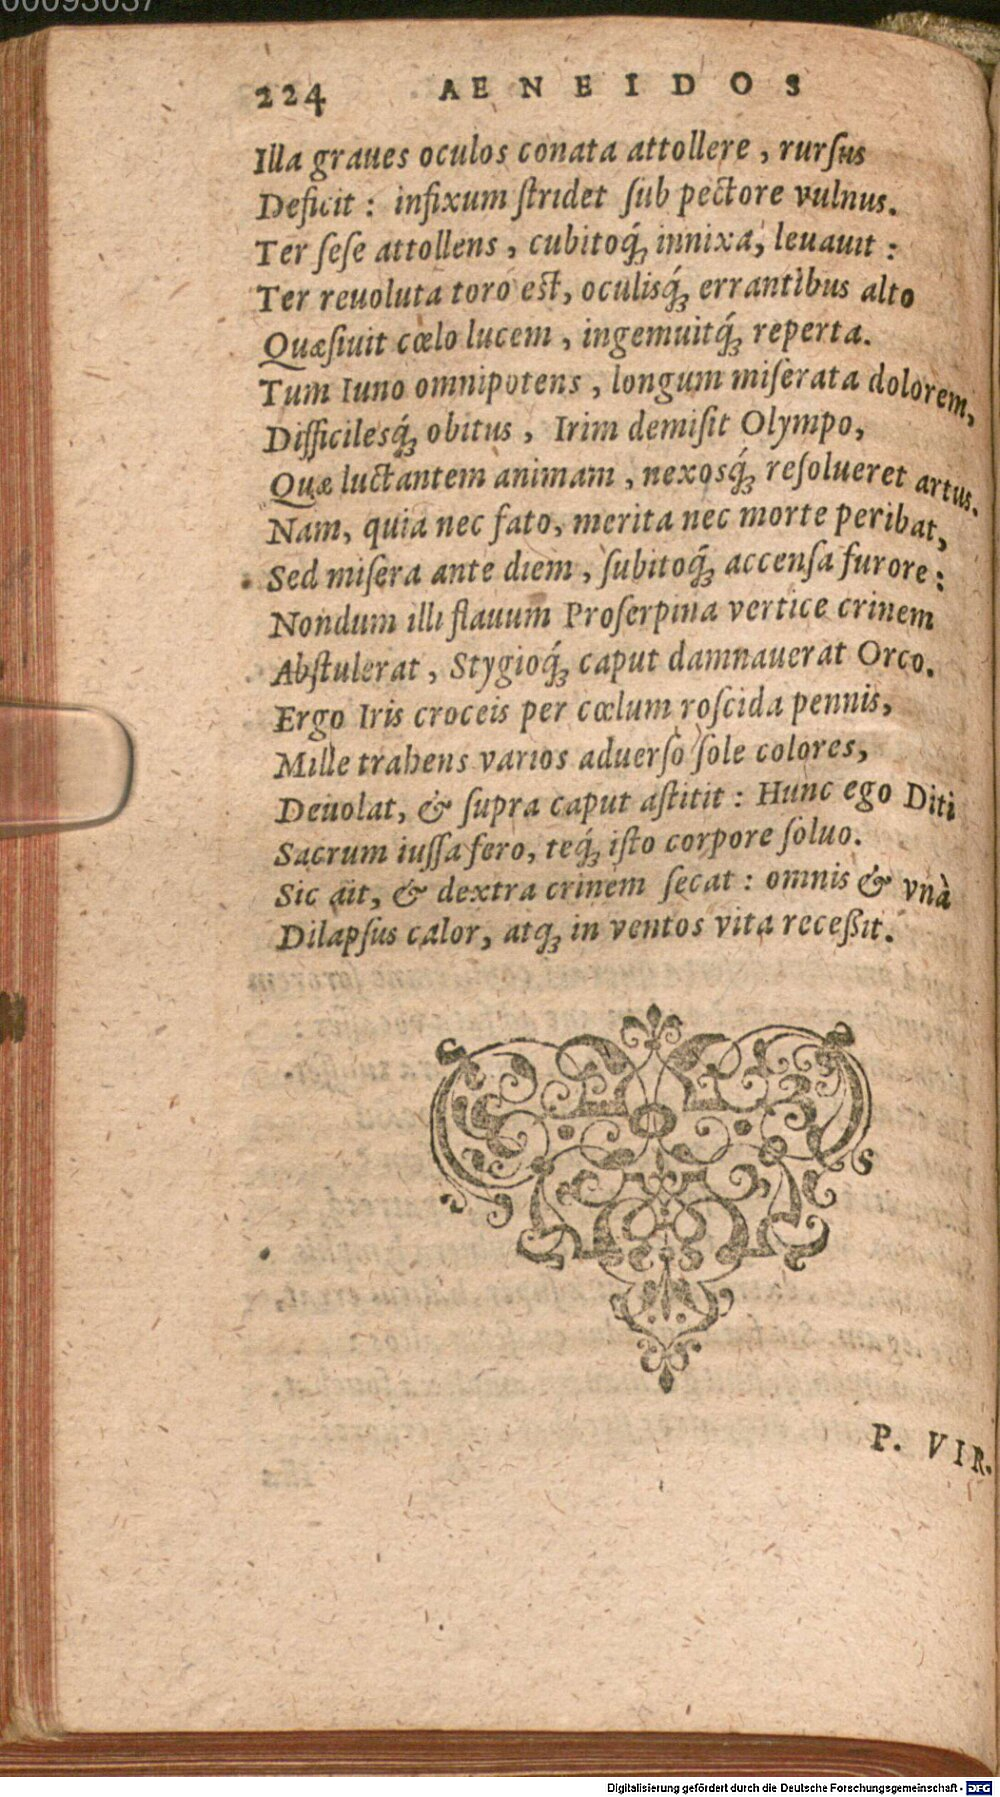 00093037
224 AENEIDOS
Illa graues oculos conata attollere, rurſus
Deficit: infixum ſtridet ſub pectore vulnus.
Ter ſeſe attollens, cubitoq́ꝫ innixa, leuauit:
Ter reuoluta toro eſt, oculisq́ꝫ errantibus alto
Quæſiuit cœlo lucem, ingemuitq́ꝫ reperta.
Tum Iuno omnipotens, longum miſerata dolorem,
Difficilesq́ꝫ obitus, Irim demiſit Olympo,
Quæ luctantem animam, nexosq́ꝫ reſolueret artus.
Nam, quia nec fato, merita nec morte peribat,
Sed miſera ante diem, ſubitoq́ꝫ accenſa furore:
Nondum illi flauum Proſerpina vertice crinem
Abſtulerat, Stygioq́ꝫ caput damnauerat Orco.
Ergo Iris croceis per cœlum roſcida pennis,
Mille trahens varios aduerſo ſole colores,
Deuolat, & ſupra caput aſtitit: Hunc ego Diti
Sacrum iuſſa fero, teq́ꝫ iſto corpore ſoluo.
Sic ait, & dextra crinem ſecat: omnis & vnà
Dilapſus calor, atqꝫ in ventos vita receßit.
P. VIR.
Digitalisierung gefördert durch die Deutsche Forschungsgemeinschaft - DFG